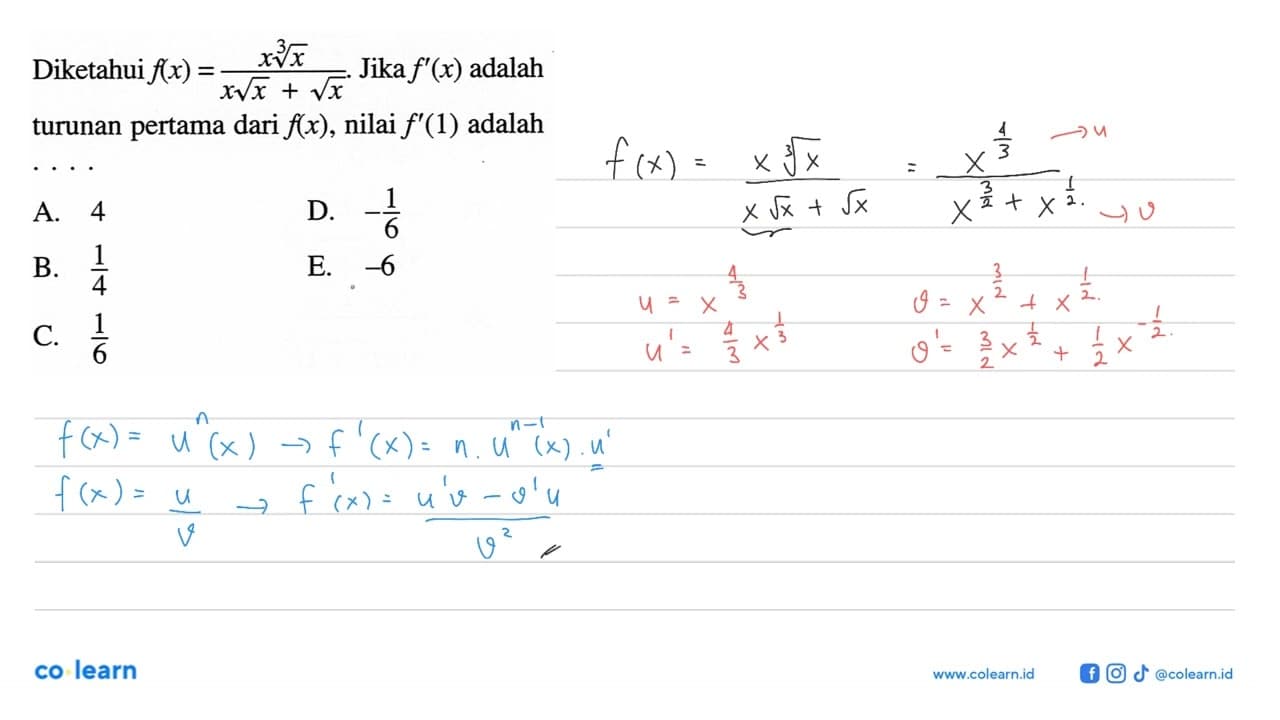 Diketahui f(x) = x∛x / (x√x + √x). Jika f'(x) adalah
turunan pertama dari f(x), nilai f'(1) adalah
. . . .
A. 4
B. 1/4
C. 1/6
D. –1/6
E. –6
f(x) = x ∛x / (x√x + √x) = x^(4/3) / (x^(3/2) + x^(1/2)) → u → v
u = x^(4/3)
u' = 4/3 x^(1/3)
v = x^(3/2) + x^(1/2)
v' = 3/2 x^(1/2) + 1/2 x^(-1/2)
f(x) = u^n(x) → f'(x) = n . u^(n-1)(x) . u'
f(x) = u/v → f'(x) = (u'v - v'u) / v²
co learn
www.colearn.id
@colearn.id